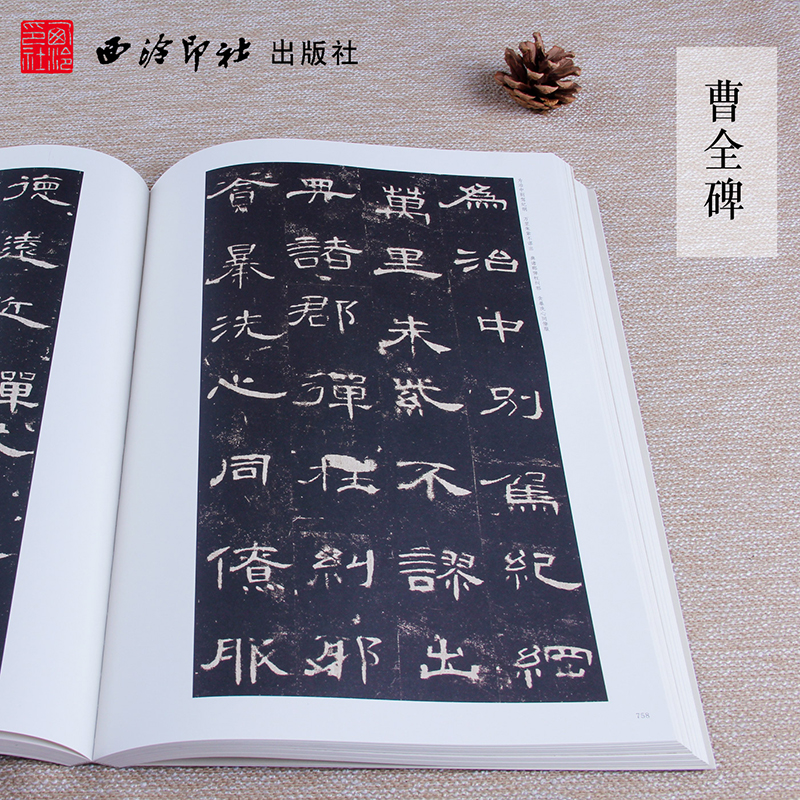 西泠印社
西泠印社 出版社
曹全碑
為治中別駕紀綱
萬里朱紫不謬出
典諸郡彈枉糾邪
貪暴洗心同僚服
德遠近憚
758